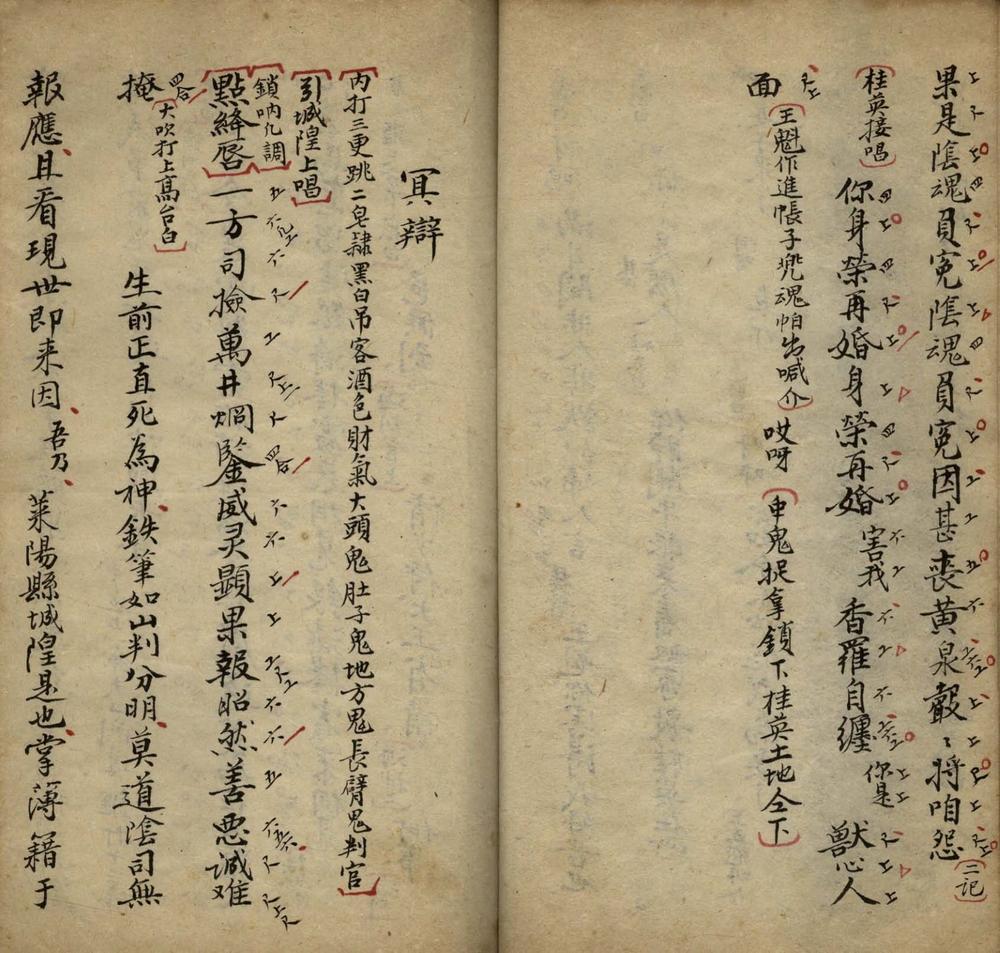 果是陰魂員冤陰魂員冤因甚喪黃泉㲉〻將咱怨二記
桂英接唱你身榮再婚身榮再婚害我香羅自纏你是獸心人
面王魁作進帳子兜魂帕出喊介哎呀申鬼捉拿鎖下桂英土地仝下
冥辯
內打三更跳二皂隸黑白吊客酒色財氣大頭鬼肚子鬼地方鬼長臂鬼判官
引城隍上唱
鎖吶凡調
點絳唇一方司撿萬井烱鑒威灵顯果報昭然善惡誠难
掩大吹打上高台白生前正直死為神鉄筆如山判分明莫道陰司無
報應且看現世即来因吾乃萊陽縣城隍是也掌薄籍于